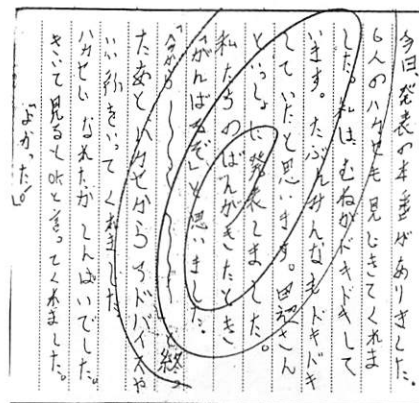 今日発表の本番がありました。
6人のハカセも見にきてくれま
した。私は、むねがドキドキして
います。たぶんみんなもドキドキ
していたと思います。田沼さん
といっしょに発表しました。
私たちのばんがきたとき
「がんばるぞ」と思いました。
「今から
と終っ
たあとハカセからアドバイスや
いい所をいってくれました
ハカセに なれたか しんぱいでした。
きいて見るとOKと言ってくれました。
「よかった!」